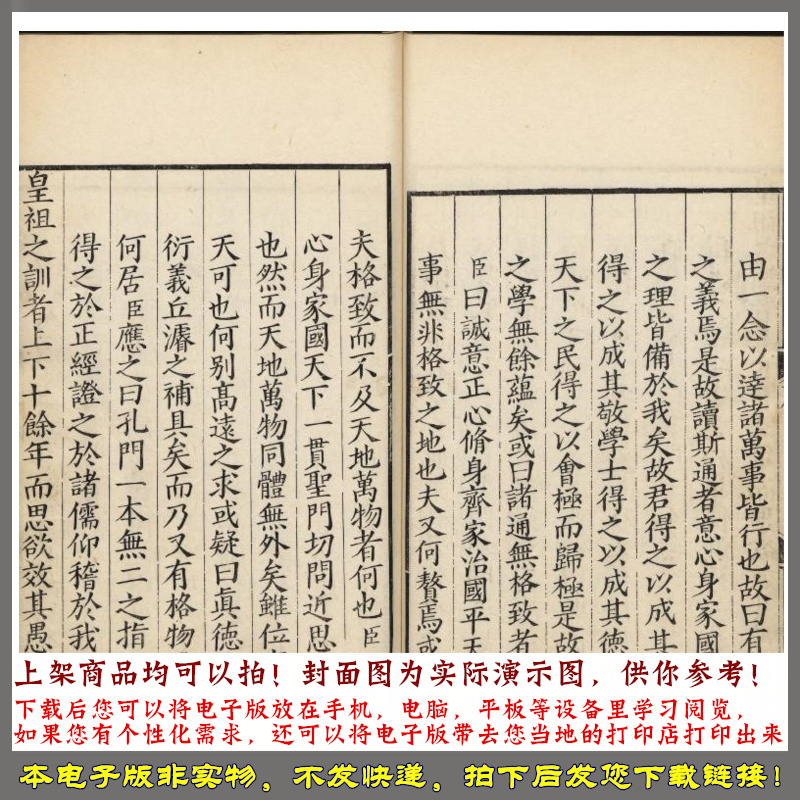 由一念以達諸萬事皆行也故曰有
之義焉是故讀斯通者意心身家國
之理皆備於我矣故君得之以成其
得之以成其敬學士得之以成其德
天下之民得之以會極而歸極是故
之學無餘蘊矣或曰諸通無格致者
臣曰誠意正心脩身齊家治國平天
事無非格致之地也夫又何贅焉或
夫格致而不及天地萬物者何也臣
心身家國天下一貫聖門切問近思
也然而天地萬物同體無外矣雖位
天可也何别髙遠之求或疑曰眞德
衍義丘濬之補具矣而乃又有格物
何居臣應之曰孔門一本無二之指
得之於正經證之於諸儒仰稽於我
皇祖之訓者上下十餘年而思欲效其愚
上架商品均可以拍！封面图为实际演示图，供你参考！
下载后您可以将电子版放在手机，电脑，平板等设备里学习阅览，
如果您有个性化需求，还可以将电子版带去您当地的打印店打印出来
本电子版非实物，不发快递，拍下后发您下载链接！